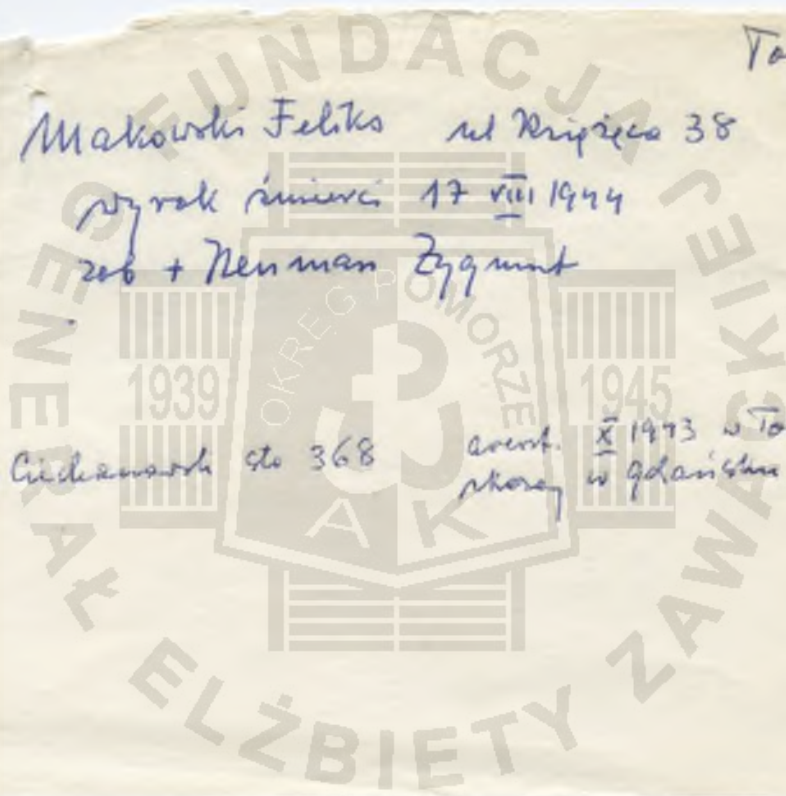 To
Makowski Feliks ul Książęca 38
wyrok śmierci 17 VIII 1944
zob + Neuman Zygmunt
Ciechanowski str 368 areszt. X 1943 w To
skazany w Gdańsku
FUNDACJA GENERAŁ ELŻBIETY ZAWACKIEJ
OKRĘG POMORZE
1939 1945
AK